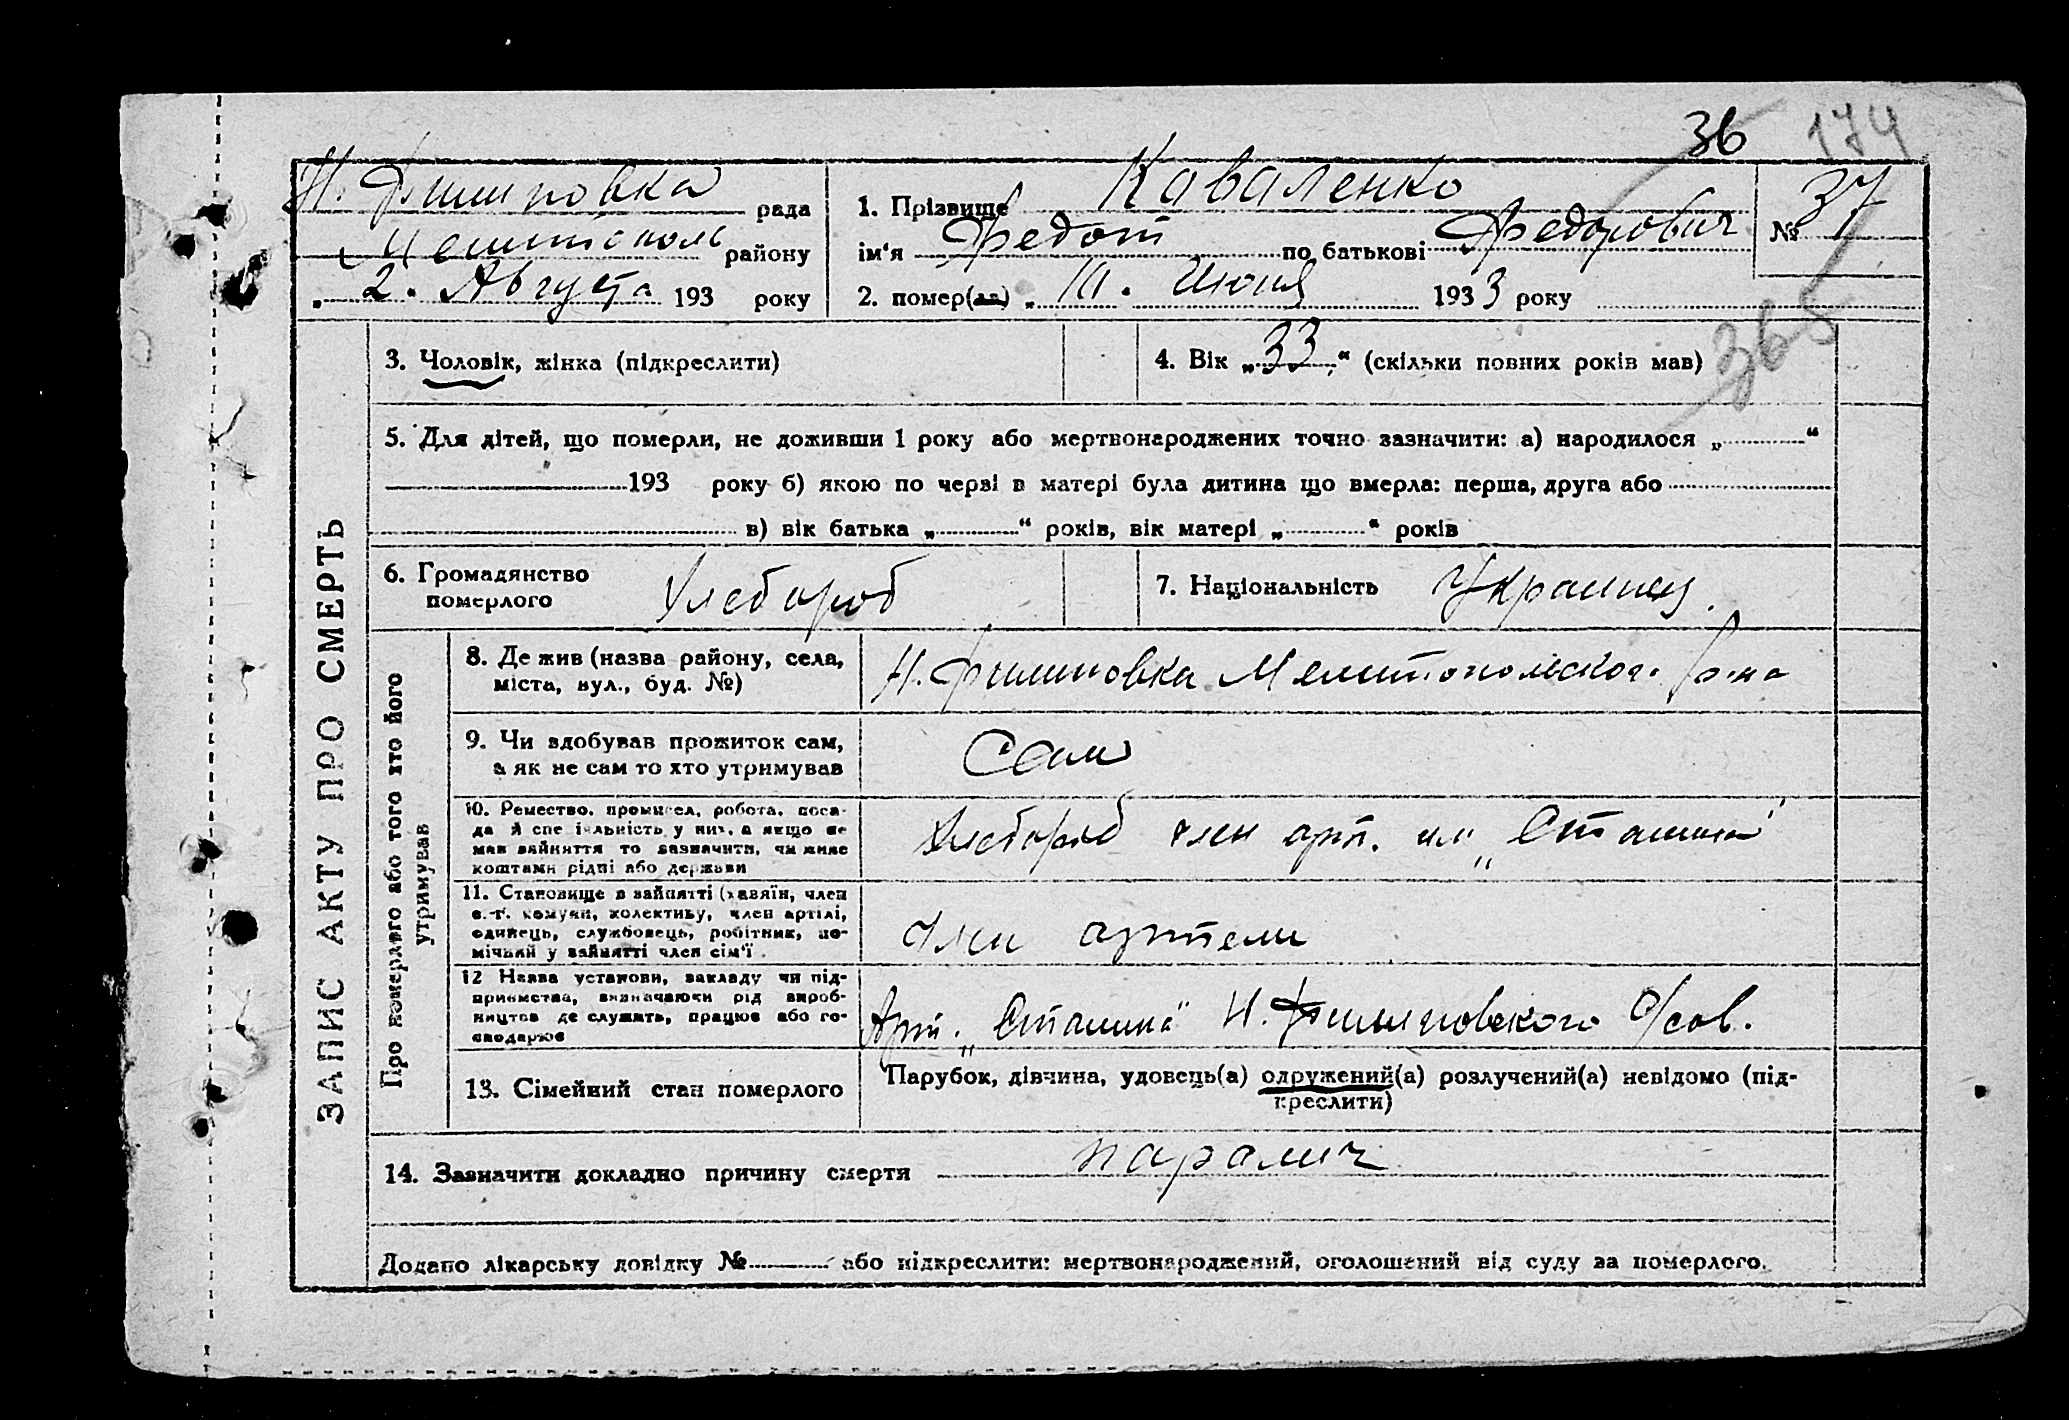 36 174
Н. Филиповка рада
Мелитополь району
„ 2. Августа 193 року
1. Прізвище Каваленко
ім‘я Федот по батькові Федорович
№ 37
2. помер(ла) „ 10. Июня 1933 року
365
ЗАПИС АКТУ ПРО СМЕРТЬ
3. Чоловік, жінка (підкреслити)
4. Вік „33“ (скільки повних років мав)
5. Для дітей, що померли, не доживши 1 року або мертвонароджених точно зазначити: а) народилося „ “
193 року б) якою по черзі в матері була дитина що вмерла: перша, друга або
в) вік батька „ “ років, вік матері „ “ років
6. Громадянство
померлого Хлебороб
7. Національність Украинец.
Про померлого або того хто його
утримував
8. Де жив (назва району, села,
міста, вул., буд. №)
Н. Филиповка Мелитопольского р-на
9. Чи здобував прожиток сам,
а як не сам то хто утримував
Сам
10. Ремество, промисел, робота, поса-
да й спеціяльність у них, а якщо не
мав зайняття то зазначити, чи живе
коштами рідні або держави
Хлебороб член арт. им „Сталина“
11. Становище в зайнятті (хазяїн, член
с.-г. комуни, колективу, член артілі,
одинець, службовець, робітник, по-
мічний у зайнятті член сім‘ї
Член артели
12 Назва установи, закладу чи під-
приємства, визначаючи рід вироб-
ництва де служить, працює або го-
сподарює
Арт. „Сталина“ Н. Филиповского с/сов.
13. Сімейний стан померлого
Парубок, дівчина, удовець(а) одружений(а) розлучений(а) невідомо (під-
креслити)
14. Зазначити докладно причину смерти паралич
Додано лікарську довідку № або підкреслити: мертвонароджений, оголошений від суду за померлого.